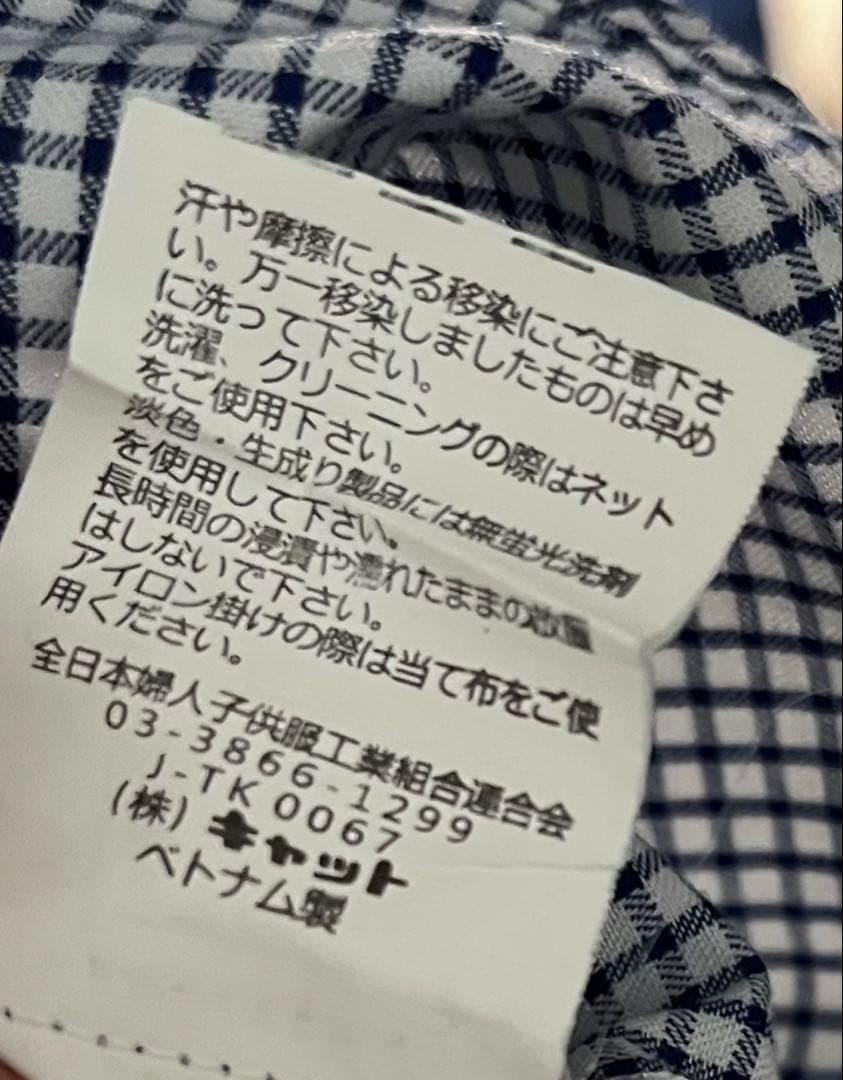 汗や摩擦による移染にご注意下さ
い。万一移染しましたものは早め
に洗って下さい。
洗濯、クリーニングの際はネット
をご使用下さい。
淡色・生成り製品には無蛍光洗剤
を使用して下さい。
長時間の浸漬や濡れたままの放置
はしないで下さい。
アイロン掛けの際は当て布をご使
用ください。
全日本婦人子供服工業組合連合会
03-3866-1299
J-TK 0067
(株) キャット
ベトナム製